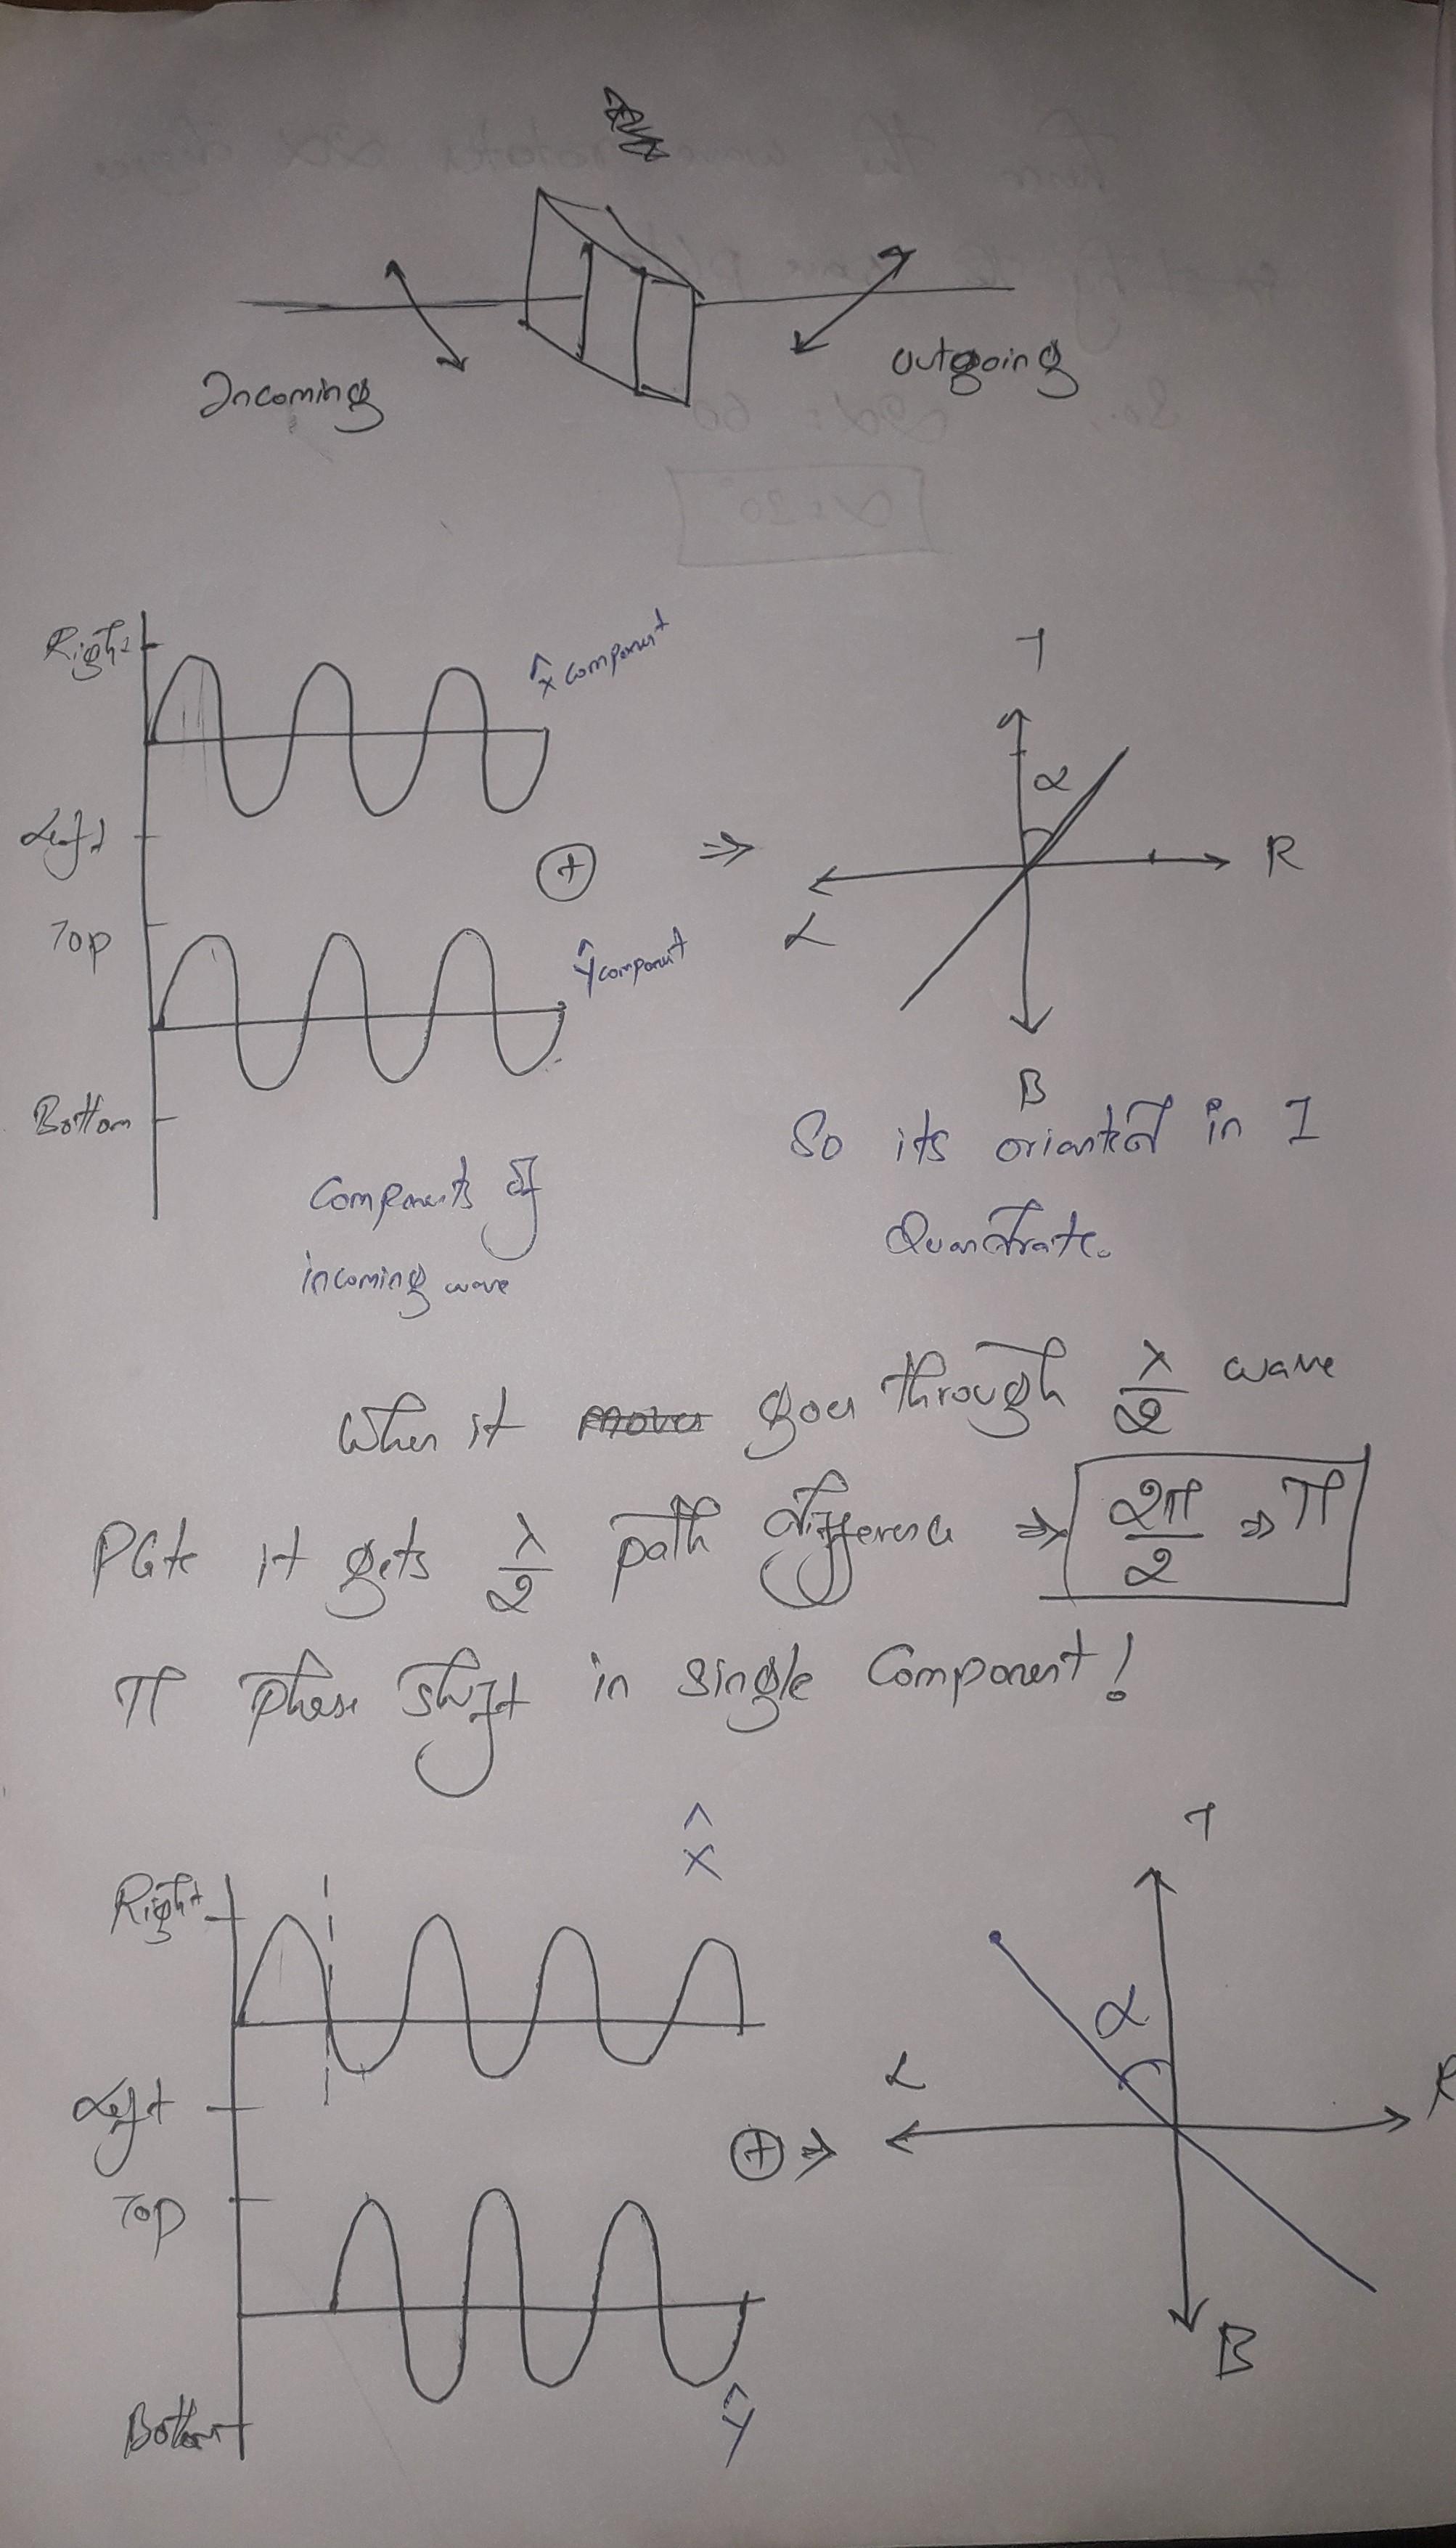 Incoming
Outgoing
Right
x̂ component
Left
Top
ŷ component
Bottom
Components of
incoming wave
T
α
R
L
B
So its oriented in I
Quandrate.
When it mover goes through λ/2 wave
Plate it gets λ/2 path difference ⇒ 2π/2 ⇒ π
π Phase shift in single Component!
x̂
Right
Left
⊕ ⇒
Top
Bottom
ŷ
T
α
L
R
B